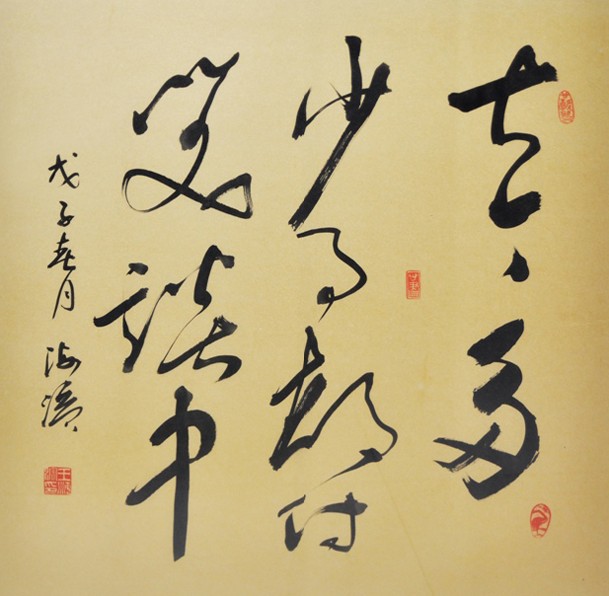 古今多
少事都付
笑談中
戊子春月